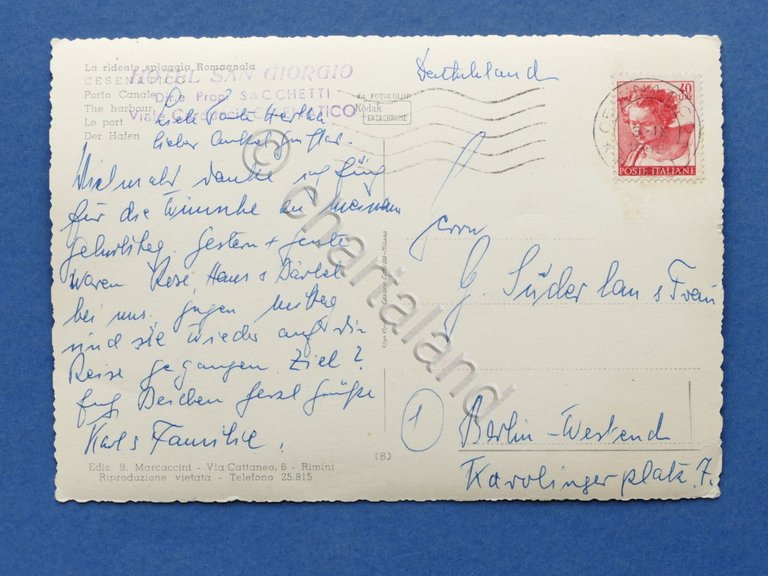 La ridente spiaggia Romagnola
CESENATICO
Porto Canale
The harbour
Le port
Der Hafen
HOTEL SAN GIORGIO
Dir. e Prop. SACCHETTI
Viale CESENATICO
da FOTOCOLOR
Kodak
EKTACHROME
Deutschland
40
POSTE ITALIANE
Liebe Tante Hertha
lieber Onkel Gustav.
Vielmals danke ich
für die Wünsche an meinem
Geburtstag. Gestern + heute
waren Rosi, Hans + Bärbel
bei uns, gegen Mittag
sind sie wieder auf die
Reise gegangen. Ziel?
Euch Beiden herzl Grüße
Karls Familie.
Herrn
G. Süderlau + Frau
1
Berlin-Westend
Karolingerplatz 7.
(8)
Ediz. B. Marcaccini - Via Cattaneo, 6 - Rimini
Riproduzione vietata - Telefono 25.815
© chartaland